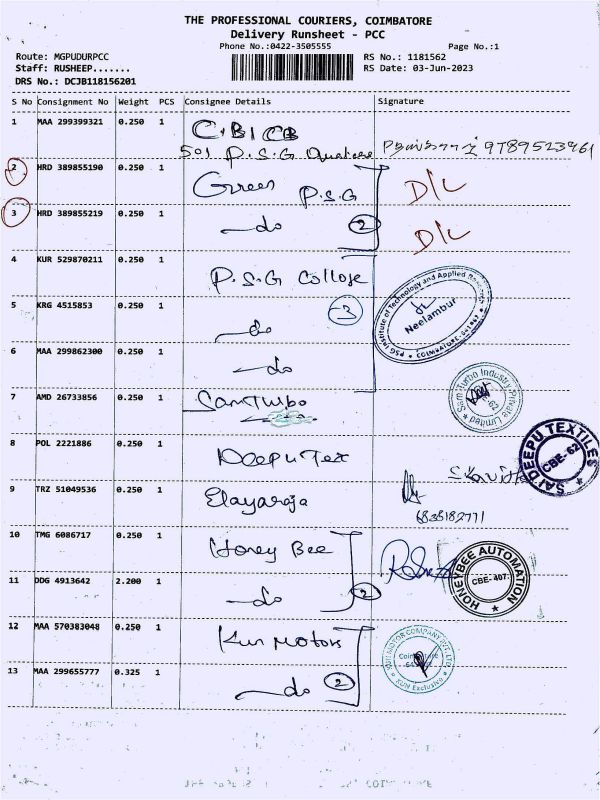 THE PROFESSIONAL COURIERS, COIMBATORE
Delivery Runsheet - PCC
Phone No.:0422-3505555 Page No.:1
Route: MGPUDURPCC RS No.: 1181562
Staff: RUSHEEP....... RS Date: 03-Jun-2023
DRS No.: DCJB118156201
S No Consignment No Weight PCS Consignee Details Signature
1 MAA 299399321 0.250 1 C.B.I CB
501 P.S.G 9789523961
2 HRD 389855190 0.250 1 Green P.S.G D/L
3 HRD 389855219 0.250 1 do 2 D/L
4 KUR 529870211 0.250 1 P.S.G College
PSG Institute of Technology and Applied Research
Neelambur
COIMBATORE-641 062
5 KRG 4515853 0.250 1 do 3
6 MAA 299862300 0.250 1 do
7 AMD 26733856 0.250 1 Sam Turbo
Sam Turbo Industry Private Limited
8 POL 2221886 0.250 1 Deepu Tex
SAI DEEPU TEXTILES
CBE-62
9 TRZ 51049536 0.250 1 Elayaraja
10 TMG 6086717 0.250 1 Honey Bee
HONEYBEE AUTOMATION
CBE-407
11 DDG 4913642 2.200 1 do 2
12 MAA 570383048 0.250 1 Kun Motors
KUN MOTOR COMPANY PVT LTD
Coimbatore
KUN Exclusive
13 MAA 299655777 0.325 1 do 2